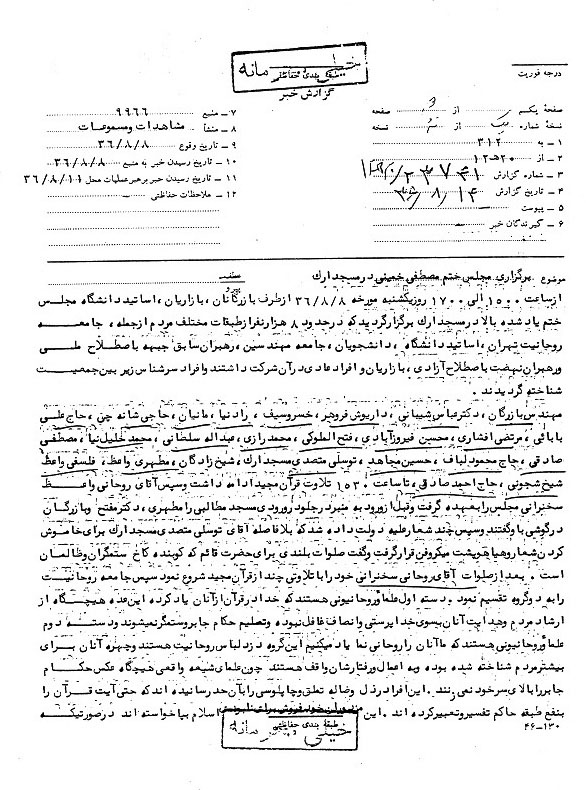 خیلی محرمانه
طبقه بندی حفاظتی
گزارش خبر
درجه فوریت
صفحهٔ یکم از ۳ صفحه
نسخهٔ شماره از نسخه
۱ - به ۳۱۲
۲ - از ۲۰ ه‍ ۱۲
۳ - شماره گزارش ۲۳۷۴۱
۴ - تاریخ گزارش ۳۶/۸/۱۴
۵ - پیوست
۶ - گیرندگان خبر
۷ - منبع ۹۹۶۶
۸ - منشأ مشاهدات و مسموعات
۹ - تاریخ وقوع ۳۶/۸/۸
۱۰ - تاریخ رسیدن خبر به منبع ۳۶/۸/۸
۱۱ - تاریخ رسیدن خبر برهبر عملیات محل ۳۶/۸/۱۱
۱۲ - ملاحظات حفاظتی
موضوع برگزاری مجلس ختم مصطفی خمینی در مسجد ارک
از ساعت ۱۵۰۰ الی ۱۷۰۰ روز یکشنبه مورخه ۳۶/۸/۸ از طرف بازرگانان، بازاریان، اساتید دانشگاه مجلس
ختم یاد شده بالا در مسجد ارک برگزار گردید که در حدود ۸ هزار نفر از طبقات مختلف مردم از جمله، جامعه
روحانیت تهران، اساتید دانشگاه، دانشجویان، جامعه مهندسین، رهبران سابق جبهه باصطلاح ملی
و رهبران نهضت باصطلاح آزادی، بازاریان و افراد عادی در آن شرکت داشتند و افراد سرشناس زیر بین جمعیت
شناخته گردیدند.
مهندس بازرگان، دکتر عباس شیبانی، داریوش فروهر، خسرو سیف، رادنیا، مانیان، حاجی شانه چی، حاج علی
بابائی، مرتضی افشاری، محسین فیروزآبادی، فتح الملوکی، محمد رازی، عبداله سلطانی، محمد خلیل نیا، مصطفی
صادقی، حاج محمود لباف، حسین مجاهد، توسلی متصدی مسجد ارک، شیخ زادگان، مطهری واعظ، فلسفی واعظ
شیخ شجونی، حاج احمد صادقی، تا ساعت ۱۵۳۰ تلاوت قرآن مجید ادامه داشت وسپس آقای روحانی واعظ
سخنرانی مجلس را بعهده گرفت وقبل از ورود به منبر در جلو در ورودی مسجد مطالبی را مطهری، دکتر مفتح و بازرگان
در گوشی باو گفتند وسپس چند شعار علیه دولت داده شد که بلافاصله آقای توسلی متصدی مسجد ارک برای خاموش
کردن شعار و هیاهو پشت میکروفن قرار گرفت وگفت صلوات بلندی برای حضرت قائم که کوبنده کاخ ستمگران وظالمان
است. بعد از صلوات آقای روحانی سخنرانی خود را با تلاوتی چند از قرآن مجید شروع نمود سپس جامعه روحانیت
را به دو گروه تقسیم نمود دسته اول علما و روحانیونی هستند که خدا در قرآن از آنان یاد کرده این عده هیچگاه از
ارشاد مردم وهدایت آنان بسوی خدا پرستی وانصاف غافل نبوده وتسلیم حکام جابر و ستمگر نمیشوند ودسته دوم
علما و روحانیونی هستند که ما آنان را روحانی نما یاد میکنیم این گروه دزد لباس روحانیت هستند و چهره آنان برای
بیشتر مردم شناخته شده بوده وبه اعمال ورفتارشان واقف هستند چون علمای شیعه واقعی هیچگاه عکس حکام
جابر را بالای سر خود نمی زنند. این افراد رذل وضاله تملق وچاپلوسی را بآن حد رسانیده اند که حتی آیت قرآن را
بنفع طبقه حاکم تفسیر وتعبیر کرده اند. این اسلام بپا خواسته اند در صورتیکه
طبقه بندی حفاظتی
خیلی محرمانه
۴۶-۱۳۰